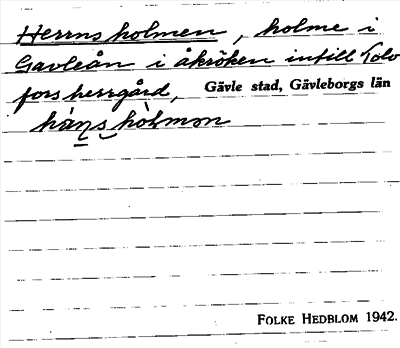 Herrnsholmen, holme i
Gavleån i åkröken intill Tolv
fors herrgård, Gävle stad, Gävleborgs län
hä̀ṉs̮hòlmən
FOLKE HEDBLOM 1942.